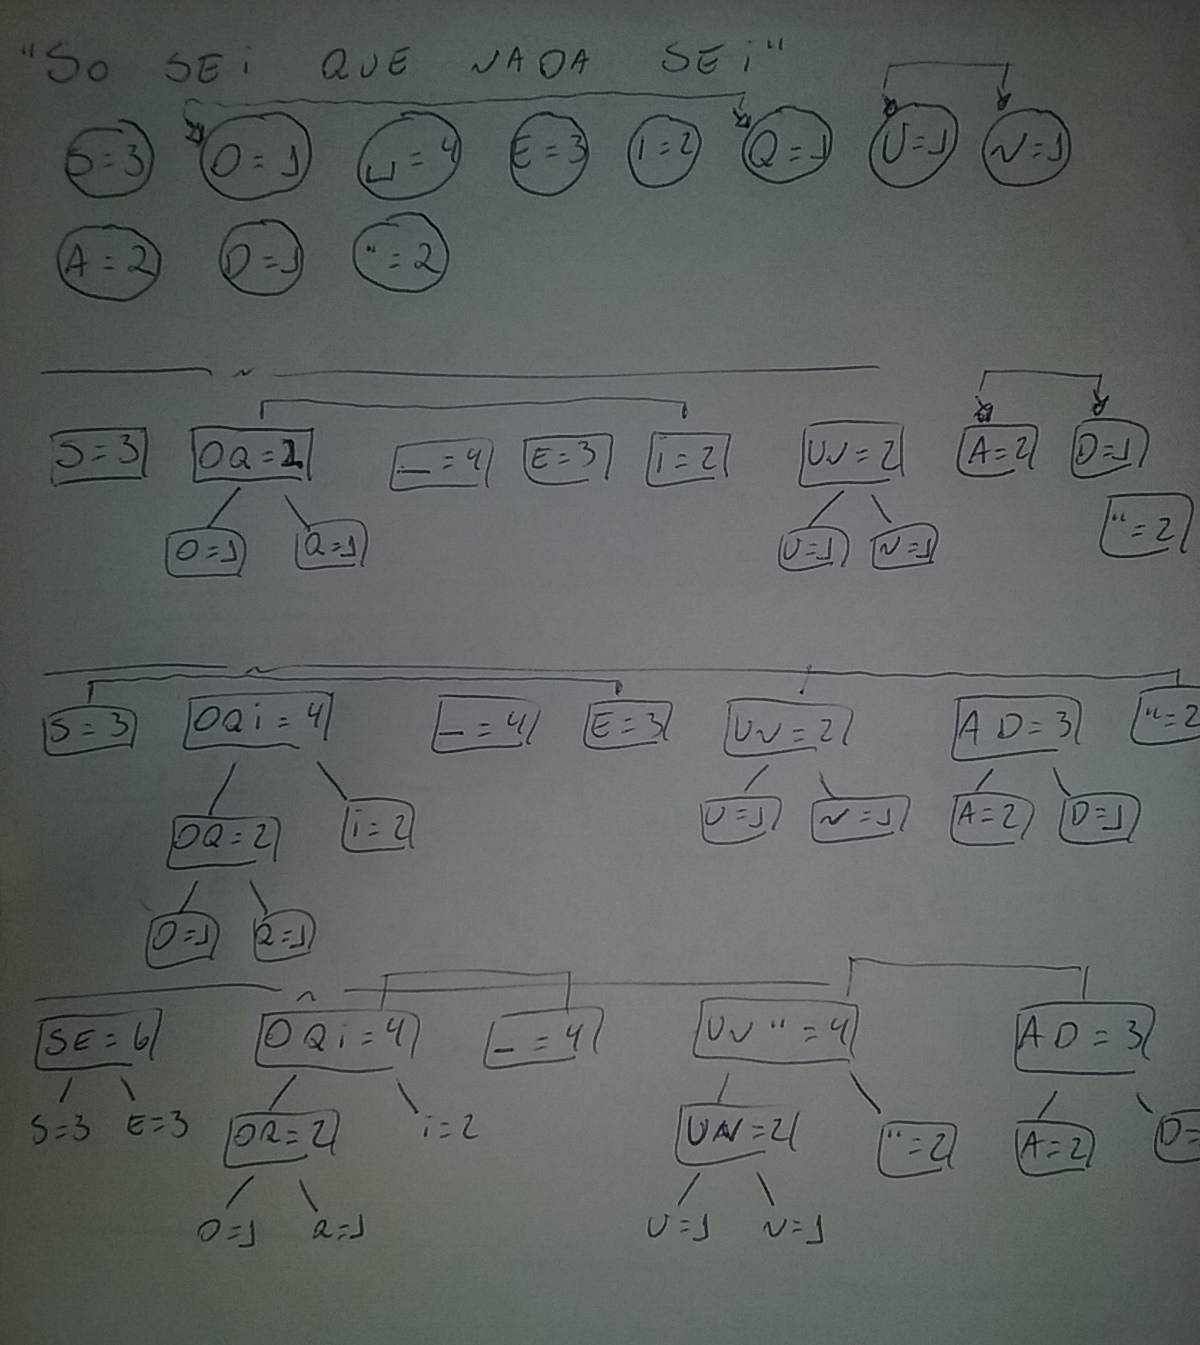 "SO SEi QUE NADA SEi"
S=3 O=1 ⊔=4 E=3 I=2 Q=1 U=1 N=1
A=2 D=1 "=2
S=3 OQ=2 _=4 E=3 i=2 UN=2 A=2 D=1
O=1 Q=1 U=1 N=1 "=2
S=3 OQi=4 _=4 E=3 UN=2 AD=3 "=2
OQ=2 i=2 U=1 N=1 A=2 D=1
O=1 Q=1
SE=6 OQi=4 _=4 UN"=4 AD=3
S=3 E=3 OQ=2 i=2 UN=2 "=2 A=2 D=
O=1 Q=1 U=1 N=1